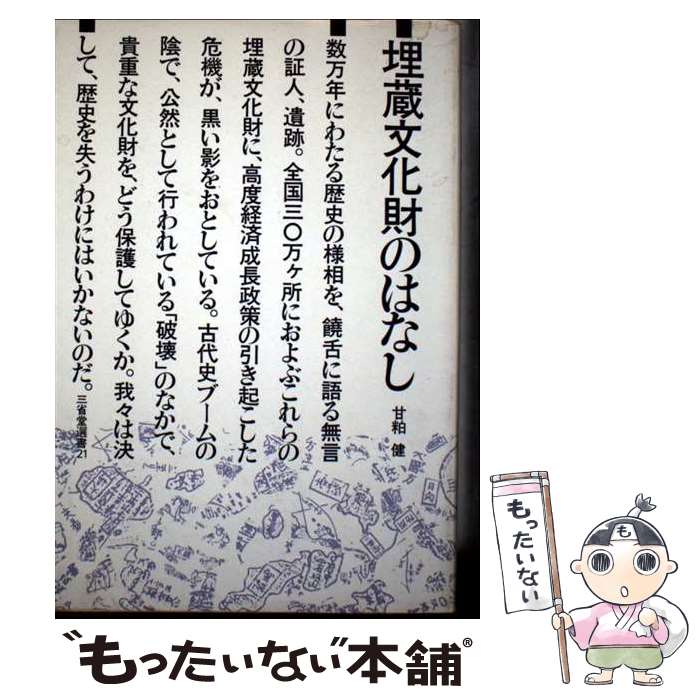 埋蔵文化財のはなし
甘粕 健
数万年にわたる歴史の様相を、饒舌に語る無言
の証人、遺跡。全国三〇万ヶ所におよぶこれらの
埋蔵文化財に、高度経済成長政策の引き起こした
危機が、黒い影をおとしている。古代史ブームの
陰で、公然として行われている「破壊」のなかで、
貴重な文化財を、どう保護してゆくか。我々は決
して、歴史を失うわけにはいかないのだ。
三省堂選書21
もったいない
も
“もったいない本舗”®